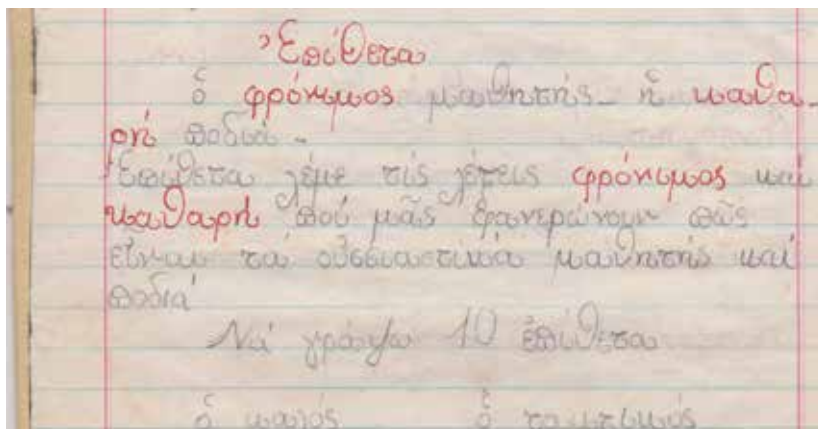 Ἐπίθετα
ὁ φρόνιμος μαθητής - ἡ καθα-
ρή ποδιά -
Ἐπίθετα λέμε τίς λέξεις φρόνιμος καί
καθαρή πού μᾶς φανερώνουν πῶς
εἶναι τά οὐσσιαστικά μαθητής καί
ποδιά
Νά γράψω 10 ἐπίθετα
ὁ καλός ὁ τακτικός